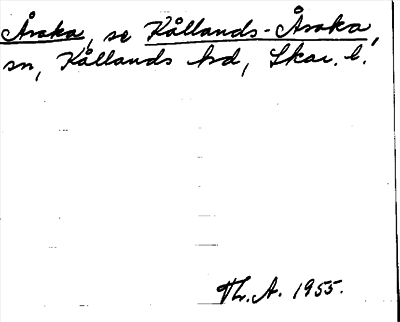 Åsaka, se Kållands-Åsaka,
sn, Kållands hd, Skar. l.
Th. A. 1955.